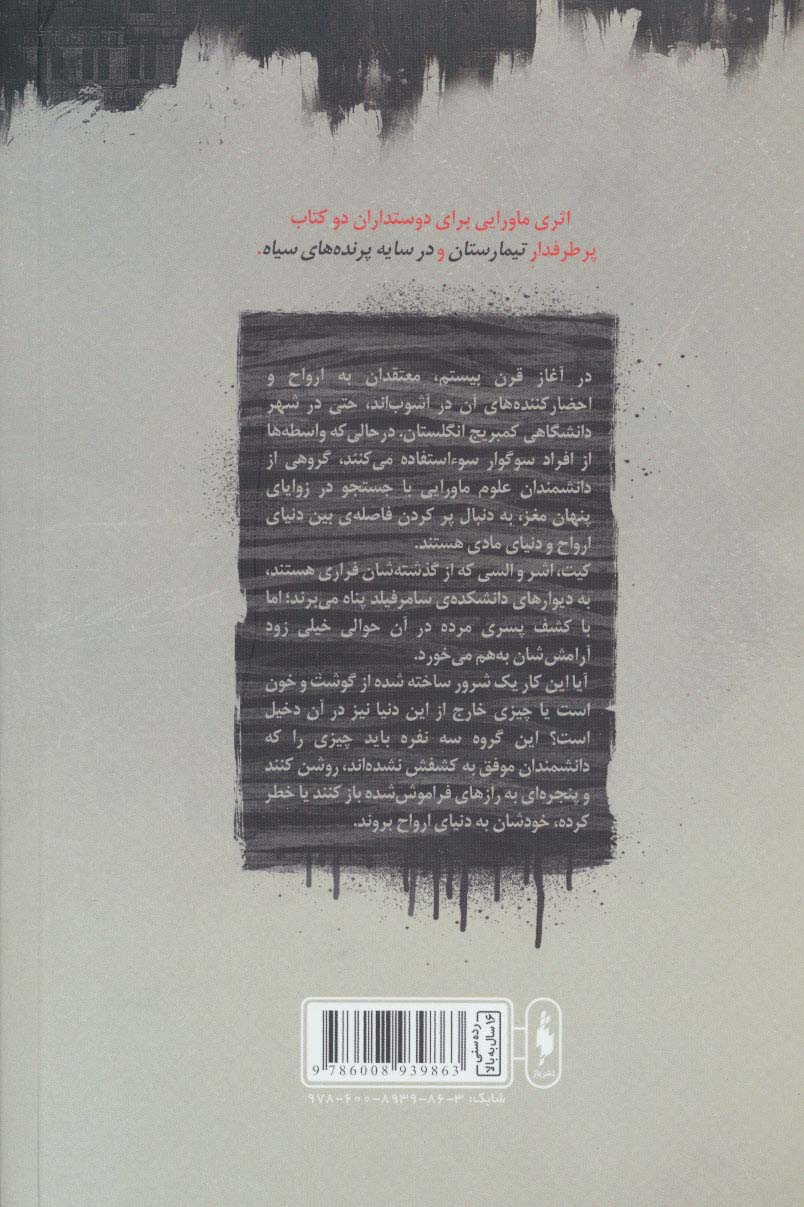 اثری ماورایی برای دوستداران دو کتاب
پرطرفدارِ تیمارستان و در سایه پرنده‌های سیاه.
در آغاز قرن بیستم، معتقدان به ارواح و
احضارکننده‌های آن در آشوب‌اند، حتی در شهر
دانشگاهی کمبریج انگلستان. درحالی‌که واسطه‌ها
از افراد سوگوار سوءاستفاده می‌کنند، گروهی از
دانشمندان علوم ماورایی با جستجو در زوایای
پنهان مغز، به دنبال پر کردن فاصله‌ی بین دنیای
ارواح و دنیای مادی هستند.
کیت، اشر و السی که از گذشته‌شان فراری هستند،
به دیوارهای دانشکده‌ی سامرفیلد پناه می‌برند؛ اما
با کشف پسری مرده در آن حوالی خیلی زود
آرامش‌شان به‌هم می‌خورد.
آیا این کار یک شرور ساخته شده از گوشت و خون
است یا چیزی خارج از این دنیا نیز در آن دخیل
است؟ این گروه سه نفره باید چیزی را که
دانشمندان موفق به کشفش نشده‌اند، روشن کنند
و پنجره‌ای به رازهای فراموش‌شده باز کنند یا خطر
کرده، خودشان به دنیای ارواح بروند.
رده سنی
۱۶ سال به بالا
نشر باژ
9 786008 939863
شابک: ۹۷۸-۶۰۰-۸۹۳۹-۸۶-۳